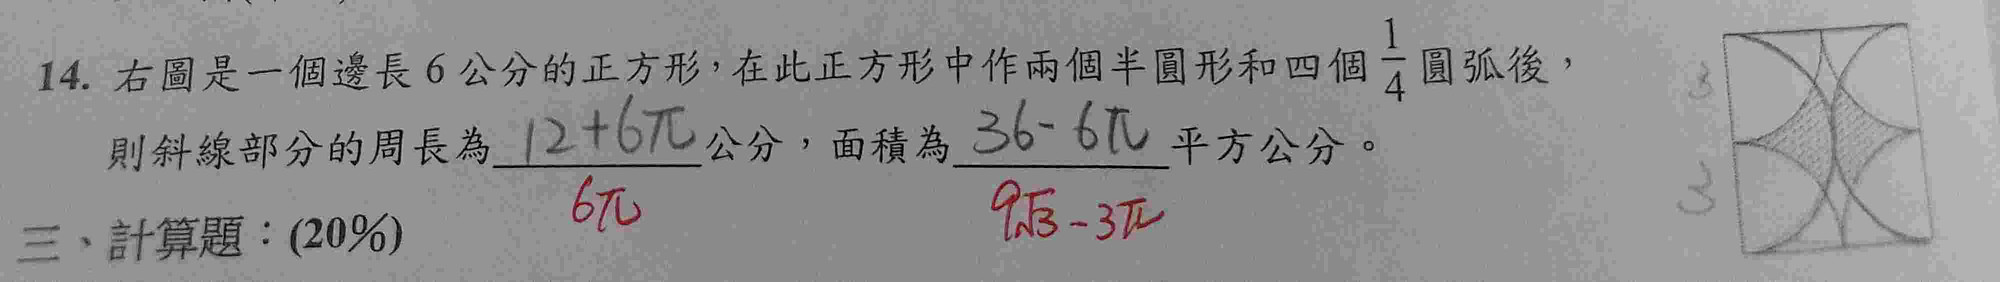 14. 右圖是一個邊長 6 公分的正方形，在此正方形中作兩個半圓形和四個 1/4 圓弧後，
則斜線部分的周長為 12+6π 公分，面積為 36-6π 平方公分。
6π 9√3-3π
三、計算題：(20%)
3
3